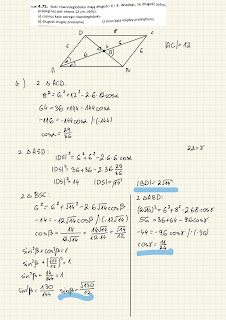 4.75. Boki równoległoboku mają długości 6 i 8. Wiedząc, że długość jednej
przekątnej jest równa 12 cm, oblicz:
a) cosinus kąta ostrego równoległoboku
b) długość drugiej przekątnej
c) sinus kąta między przekątnymi.
D C
8
6 6
6 6
A B
|AC| = 12
Z Δ ACD:
8² = 6² + 12² - 2·6·12cosα
64 = 36 + 144 - 144cosα
-116 = -144cosα /:(-144)
cosα = 29/36
Z Δ ASD:
|DS|² = 6² + 6² - 2·6·6 cosα
|DS|² = 36 + 36 - 2·36·29/36
|DS|² = 14 |DS| = √14
|BD| = 2√14
Z Δ BSC:
6² = 6² + √14² - 2·6√14 cosβ
-14 = -12√14cosβ /:(-12√14)
cosβ = 14/12√14 = 14√14/12·14 = √14/12
sin²β + cos²β = 1
sin²β + (√14/12)² = 1
sin²β + 14/144 = 1
sin²β = 130/144 sinβ = √130/12
Z Δ ABD:
(2√14)² = 6² + 8² - 2·6·8 cosγ
56 = 36 + 64 - 96cosγ
-44 = -96 cosγ /:(-96)
cosγ = 11/24